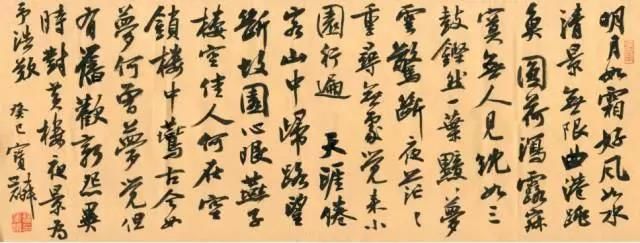 明月如霜好风如水
清景無限曲港跳
魚圓荷瀉露寂
寞無人見紞如三
鼓鏗然一葉黯々夢
雲驚斷夜茫々
重尋無處覺来小
園行遍 天涯倦
客山中歸路望
斷故園心眼燕子
樓空佳人何在空
鎖樓中燕古今如
夢何曾夢覺但
有舊歡新怨異
時對黄樓夜景為
予浩歎 癸巳寶麟